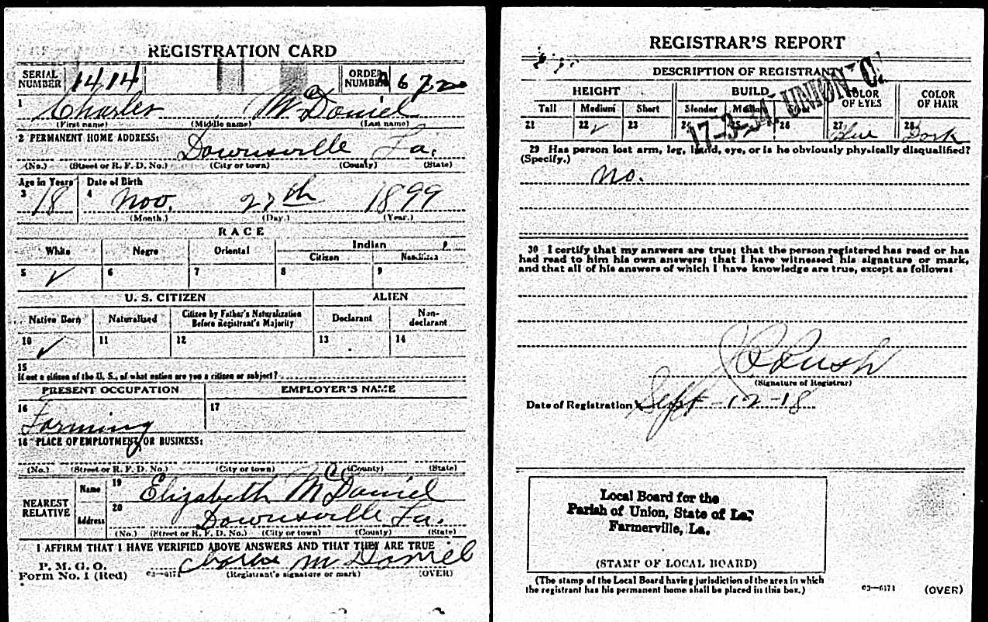 REGISTRATION CARD
SERIAL NUMBER 1414 ORDER NUMBER A 672
1 Charles McDaniel
(First name) (Middle name) (Last name)
2 PERMANENT HOME ADDRESS:
Downsville La.
(No.) (Street or R. F. D. No.) (City or town) (County) (State)
Age in Years Date of Birth
3 18 4 Nov. 27th 1899
(Month.) (Day.) (Year.)
RACE
White Negro Oriental Indian
Citizen Noncitizen
5 ✓ 6 7 8 9
U. S. CITIZEN ALIEN
Native Born Naturalized Citizen by Father's Naturalization Before Registrant's Majority Declarant Non-declarant
10 ✓ 11 12 13 14
15
If not a citizen of the U. S., of what nation are you a citizen or subject?
PRESENT OCCUPATION EMPLOYER'S NAME
16 Farming 17
18 PLACE OF EMPLOYMENT OR BUSINESS:
(No.) (Street or R. F. D. No.) (City or town) (County) (State)
NEAREST RELATIVE Name 19 Elizabeth McDaniel
Address 20 Downsville La.
(No.) (Street or R. F. D. No.) (City or town) (County) (State)
I AFFIRM THAT I HAVE VERIFIED ABOVE ANSWERS AND THAT THEY ARE TRUE
P. M. G. O.
Form No. 1 (Red) 03—6171 Charles McDaniel
(Registrant's signature or mark) (OVER)
REGISTRAR'S REPORT
17-3-34. UNION. C.
DESCRIPTION OF REGISTRANT
HEIGHT BUILD COLOR OF EYES COLOR OF HAIR
Tall Medium Short Slender Medium
21 22 ✓ 23 24 26 27 Blue 28 Dark
29 Has person lost arm, leg, hand, eye, or is he obviously physically disqualified?
(Specify.)
No.
30 I certify that my answers are true; that the person registered has read or has
had read to him his own answers; that I have witnessed his signature or mark,
and that all of his answers of which I have knowledge are true, except as follows:
(Signature of Registrar)
Date of Registration Sept-12-18
Local Board for the
Parish of Union, State of La,
Farmerville, La.
(STAMP OF LOCAL BOARD)
(The stamp of the Local Board having jurisdiction of the area in which
the registrant has his permanent home shall be placed in this box.)
03—6171 (OVER)